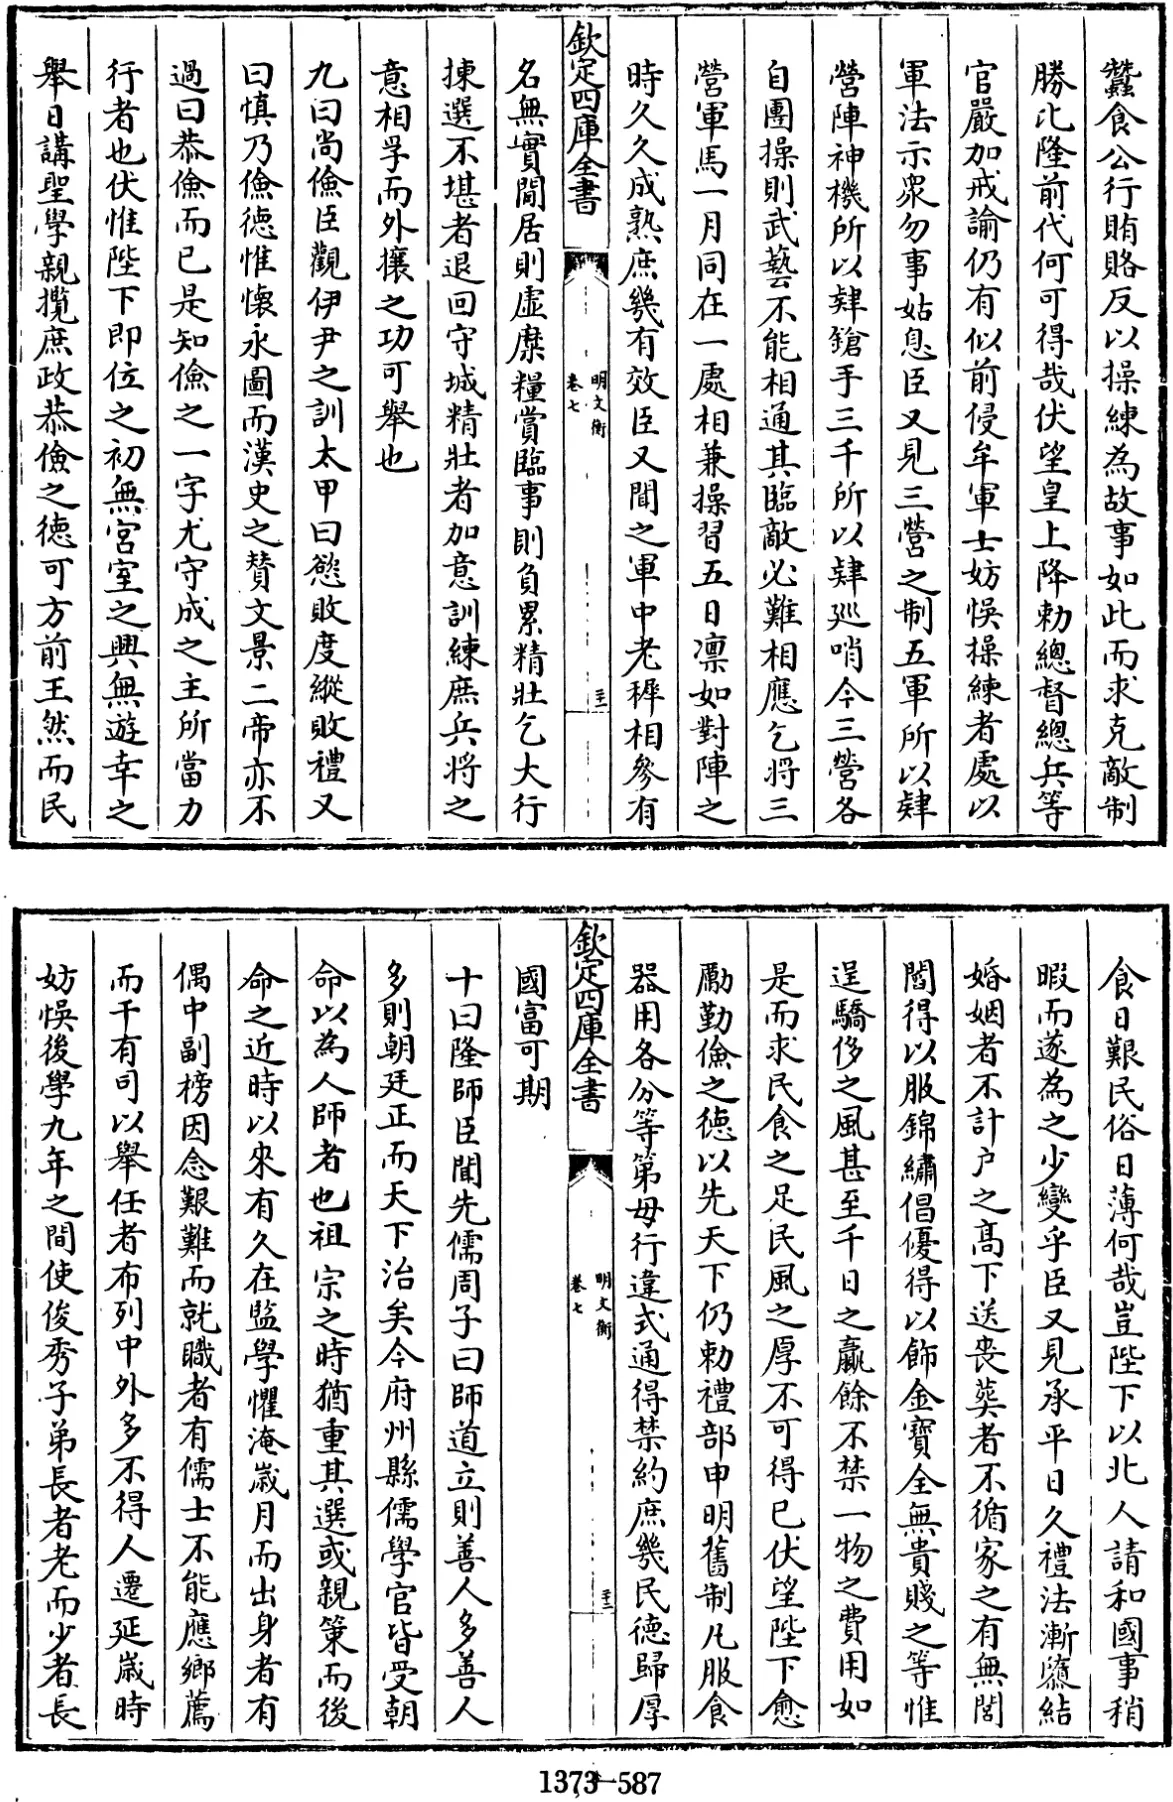 蠶食公行賄賂反以操練為故事如此而求克敵制
勝比隆前代何可得哉伏望皇上降勅總督總兵等
官嚴加戒諭仍有似前侵牟軍士妨悞操練者處以
軍法示衆勿事姑息臣又見三營之制五軍所以肄
營陣神機所以肄鎗手三千所以肄巡哨今三營各
自團操則武藝不能相通其臨敵必難相應乞將三
營軍馬一月同在一處相兼操習五日凛如對陣之
時久久成熟庶幾有效臣又聞之軍中老稺相參有
欽定四庫全書
明文衡
卷七
三十一
名無實閒居則虛糜糧賞臨事則負累精壯乞大行
揀選不堪者退回守城精壯者加意訓練庶兵將之
意相孚而外攘之功可舉也
九曰尚儉臣觀伊尹之訓太甲曰慾敗度縱敗禮又
曰慎乃儉德惟懷永圖而漢史之贊文景二帝亦不
過曰恭儉而已是知儉之一字尤守成之主所當力
行者也伏惟陛下即位之初無宮室之興無遊幸之
舉日講聖學親攬庶政恭儉之德可方前王然而民
食日艱民俗日薄何哉豈陛下以北人請和國事稍
暇而遂為之少變乎臣又見承平日久禮法漸隳結
婚姻者不計户之髙下送喪葬者不循家之有無閭
閻得以服錦繡倡優得以飾金寶全無貴賤之等惟
逞驕侈之風甚至千日之贏餘不禁一物之費用如
是而求民食之足民風之厚不可得已伏望陛下愈
勵勤儉之德以先天下仍勅禮部申明舊制凡服食
器用各分等第毋行違式通得禁約庶幾民德歸厚
欽定四庫全書
明文衡
卷七
三十二
國富可期
十曰隆師臣聞先儒周子曰師道立則善人多善人
多則朝廷正而天下治矣今府州縣儒學官皆受朝
命以為人師者也祖宗之時猶重其選或親策而後
命之近時以來有久在監學懼淹嵗月而出身者有
偶中副榜因念艱難而就職者有儒士不能應鄉薦
而干有司以舉任者布列中外多不得人遷延嵗時
妨悞後學九年之間使俊秀子弟長者老而少者長
1373-587